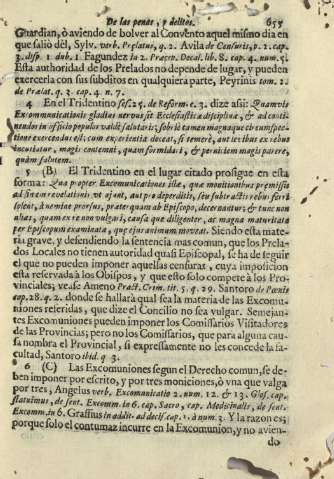 De las penas, y delitos. 655
Guardian, ò aviendo de bolver al Convento aquel mismo dia en
que saliò dèl, Sylv. verb. Prælatus, q. 2. Avila de Censuris, p. 2. cap.
3. disp. 1 dub. 1. Fagundez in 2. Præcep. Decal. lib. 8. cap. 4. num. 5.
Esta authoridad de los Prelados no depende de lugar, y pueden
exercerla con sus subditos en qualquiera parte, Peyrinis tom. 2.
de Prælat. q. 3. cap. 4. n. 7.
4 En el Tridentino sess. 25. de Reform. c. 3. dize assi: Quamvis
Excommunicationis gladius nervus sit Ecclesiasticæ disciplinæ, & ad conti-
nendos in officio populos valdè salutaris, sobriè tamen magnaque circunspec-
tione exercendus est; cum experientia doceat, si temerè, aut levibus ex rebus
incutiatur, magis contemni, quam formidari, & perniciem magis parere,
quàm salutem.
5 (B) El Tridentino en el lugar citado prosigue en esta
forma: Qua propter Excomunicationes illæ, quæ monitionibus præmissis
ad finem revelationis, vt ajunt, aut pro deperditis, seu subtractis rebus ferri
solent, à nemine prorsus, præter quam ab Episcopo, decernantur; & tunc non
aliàs, quam ex re non vulgari, causa que diligenter, ac magna maturitate
per Episcopum examinata, quæ ejus animum moveat. Siendo esta mate-
ria grave, y defendiendo la sentencia mas comun, que los Prela-
dos Locales no tienen autoridad quasi Episcopal, se ha de seguir
el que no pueden imponer aquellas censuras, cuya imposicion
esta reservada à los Obispos, y que esto solo compete à los Pro-
vinciales; vease Ameno Pract. Crim. tit. 5. q. 29. Santoro de Pœnis
cap. 28. q. 2. donde se hallarà qual sea la materia de las Excomu-
niones referidas, que dize el Concilio no sea vulgar. Semejan-
tes Excomuniones pueden imponer los Comissarios Visitadores
de las Provincias; pero no los Comissarios, que para alguna cau-
sa nombra el Provincial, si expressamente no les concede la fa-
cultad, Santoro ibid. q. 3.
6 (C) Las Excomuniones segun el Derecho comun, se de-
ben imponer por escrito, y por tres moniciones, ò vna que valga
por tres, Angelus verb. Excomunicatio 2. num. 12. & 13. Glos. cap.
statuimus, de sent. Excomm. in 6. cap. Sacro, cap. Medicinalis, de sent.
Excomm. in 6. Graffius in addit. ad decis. cap. 1. à num. 3. Y la razon es;
porque solo el contumaz incurre en la Excomunion, y no avien-
do